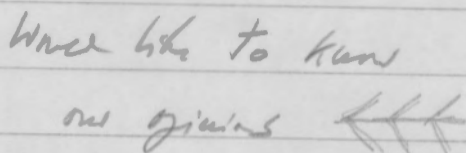 Would like to know
our opinions